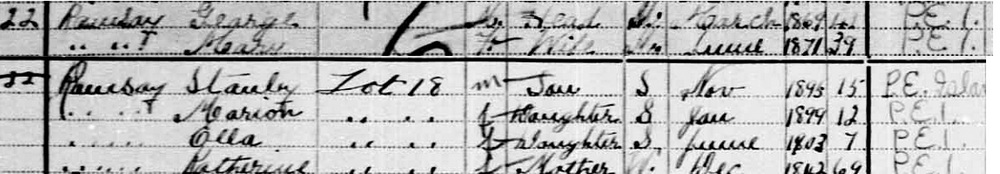 22 Ramsay George M Head M March 1869
" " Mary F Wife M June 1871 39 P.E.I.
Ramsay Stanley Lot 18 m Son S Nov 1895 15 P.E. Island
" " Marion " " f Daughter S Jan 1899 12 P.E.I.
" " Olla " " f Daughter S June 1903 7 P.E.I.
" " Katherine " " f Mother W. Dec 1842 69 P.E.I.